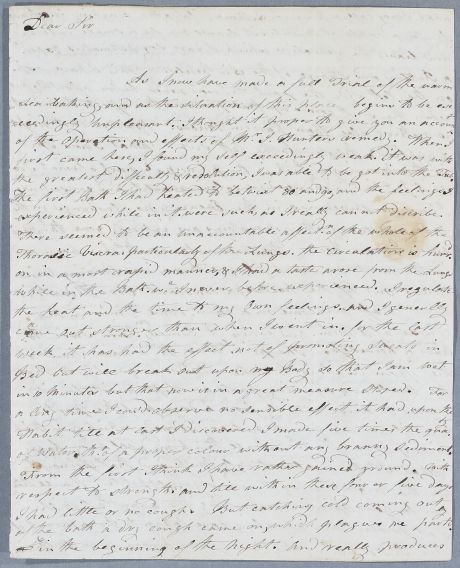 Dear Sir
As I now have made a full Trial of the warm
Sea bathing, and as the situation of this place begins to be ex
ceedingly unpleasant, I thought it proper to give you an account
of the Operation and effects of Mr. J. Hunters remedy. When I
first came here, I found my self exceedingly weak, it was with
the greatest dificulty & resolution, I was able to be got into the Tub.
The first Bath I had heated to betwixt 80 and 90, and the feelings I
experienced while in it were such as I really can not discribe.
There seemed to be an unaccountable affection of the whole of the
Thorasic Viscra particularly of the Lungs. the Circulation is
on in a most rapid manner, & I had a taste arose from the Lungs
while in the Bath wh. I never before experienced. I regulate
the heat and the time to my own feelings, and I generally
come out stronger than when I went in. for the last
week it has had the effect not of promoting sweat in
Bed but will break out upon my Body so that I am wet
in 10 minutes but that now is in a great measure stoped. For
a long time I could observe no sensible effect it had upon the
Habit till at last I discovered I made five times the quan
of Water & of a proper colour without any branny Sediment.
From the first I think I have rather gained ground. with
respect to strength and till within these four or five days
I had little or no cough. But catching cold coming out
of the bath a dry cough came on, which plagues me part
in the beginning of the Night. and really produces